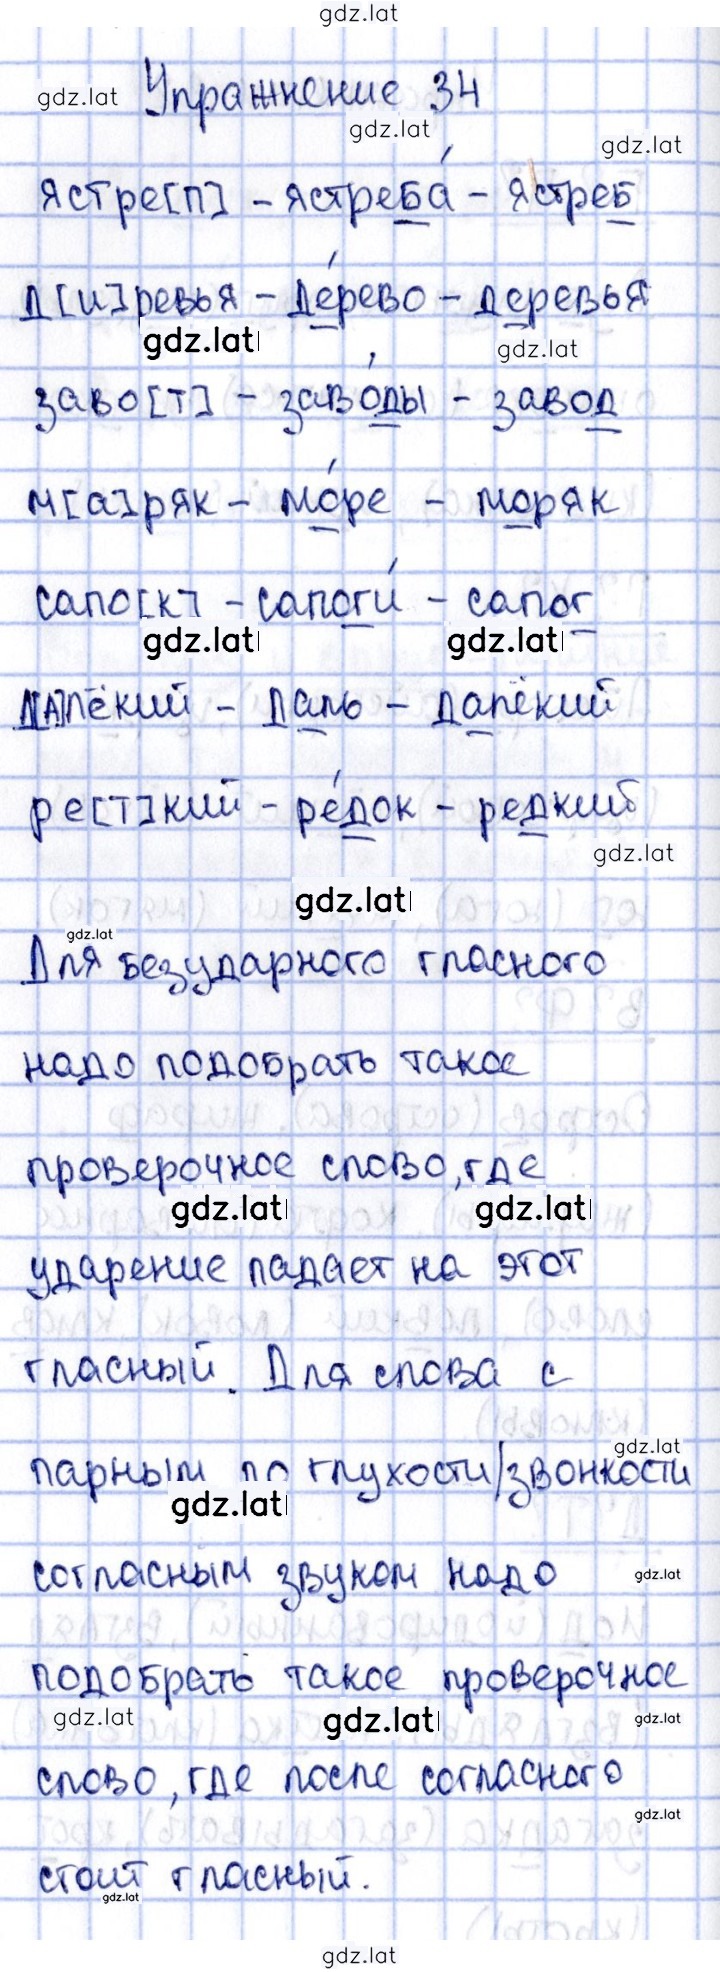 gdz.lat
gdz.lat Упражнение 34
gdz.lat
gdz.lat
ястре[п] - ястреба́ - ястреб
д[и]ревья - де́рево - деревья
gdz.lat gdz.lat
заво[т] - заво́ды - завод
м[а]ряк - мо́ре - моряк
сапо[к] - сапоги́ - сапог
gdz.lat gdz.lat
Д[А]лёкий - даль - далёкий
ре[т]кий - ре́док - редкий
gdz.lat
gdz.lat
gdz.lat
Для безударного гласного
надо подобрать такое
проверочное слово, где
gdz.lat gdz.lat
ударение падает на этот
гласный. Для слова с
gdz.lat
парным по глухости/звонкости
gdz.lat
согласным звуком надо gdz.lat
подобрать такое проверочное
gdz.lat gdz.lat gdz.lat
слово, где после согласного
gdz.lat
стоит гласный.
gdz.lat
gdz.lat